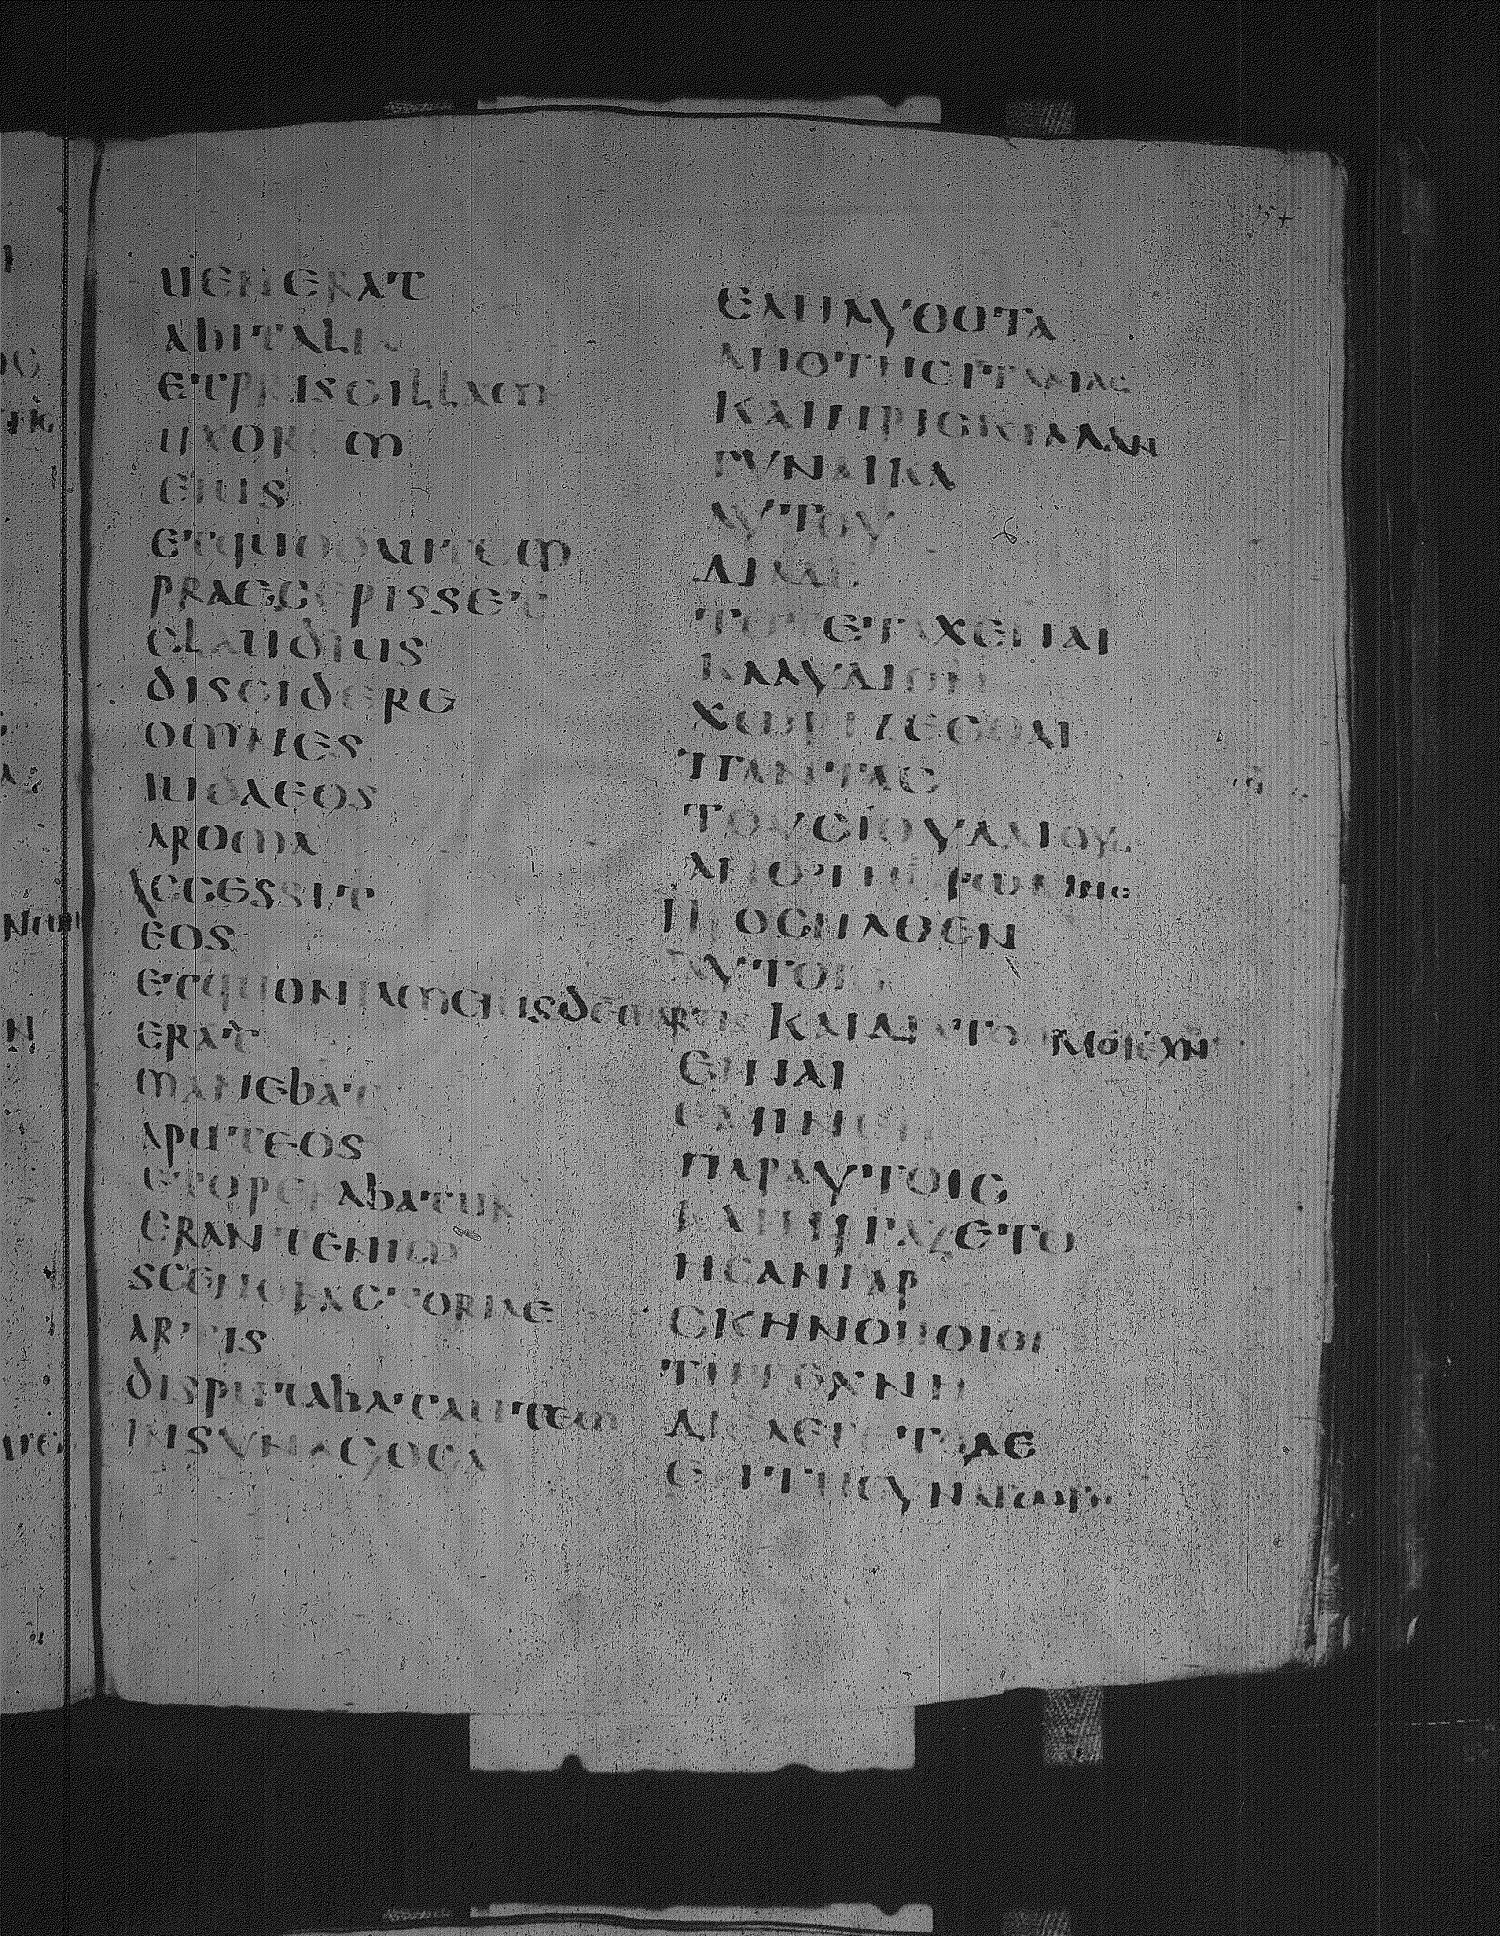 UENERAT
ABITALIA
ETPRISCILLAM
UXOREM
EIUS
ETQUODUITEM
PRAECEPISSET
CLAUDIUS
DISCIDERE
OMNES
IUDAEOS
AROMA
ACCESSIT
EOS
ETQUONIAMEIUSDEMARTIS
ERAT
MANEBAT
APUTEOS
ETOPERABATUR
ERANTENIM
SCENOFACTORIAE
ARTIS
DISPUTABATAUTEM
INSYNAGOGA
ΕΛΗΛΥΘΟΤΑ
ΑΠΟΤΗΣΙΤΑΛΙΑΣ
ΚΑΙΠΡΙΣΚΙΛΛΑΝ
ΓΥΝΑΙΚΑ
ΑΥΤΟΥ
ΔΙΑΔΕ
ΤΟΤΕΤΑΧΕΝΑΙ
ΚΛΑΥΔΙΟΝ
ΧΩΡΙΖΕΣΘΑΙ
ΠΑΝΤΑΣ
ΤΟΥΣΙΟΥΔΑΙΟΥΣ
ΑΠΟΤΗΣΡΩΜΗΣ
ΠΡΟΣΗΛΘΕΝ
ΑΥΤΟΙΣ
ΚΑΙΔΙΑΤΟΟΜΟΤΕΧΝΟΝ
ΕΙΝΑΙ
ΕΜΕΝΕΝ
ΠΑΡΑΥΤΟΙΣ
ΚΑΙΗΡΓΑΖΕΤΟ
ΗΣΑΝΓΑΡ
ΣΚΗΝΟΠΟΙΟΙ
ΤΗΤΕΧΝΗ
ΔΙΕΛΕΓΕΤΟΔΕ
ΕΝΤΗΣΥΝΑΓΩΓΗ